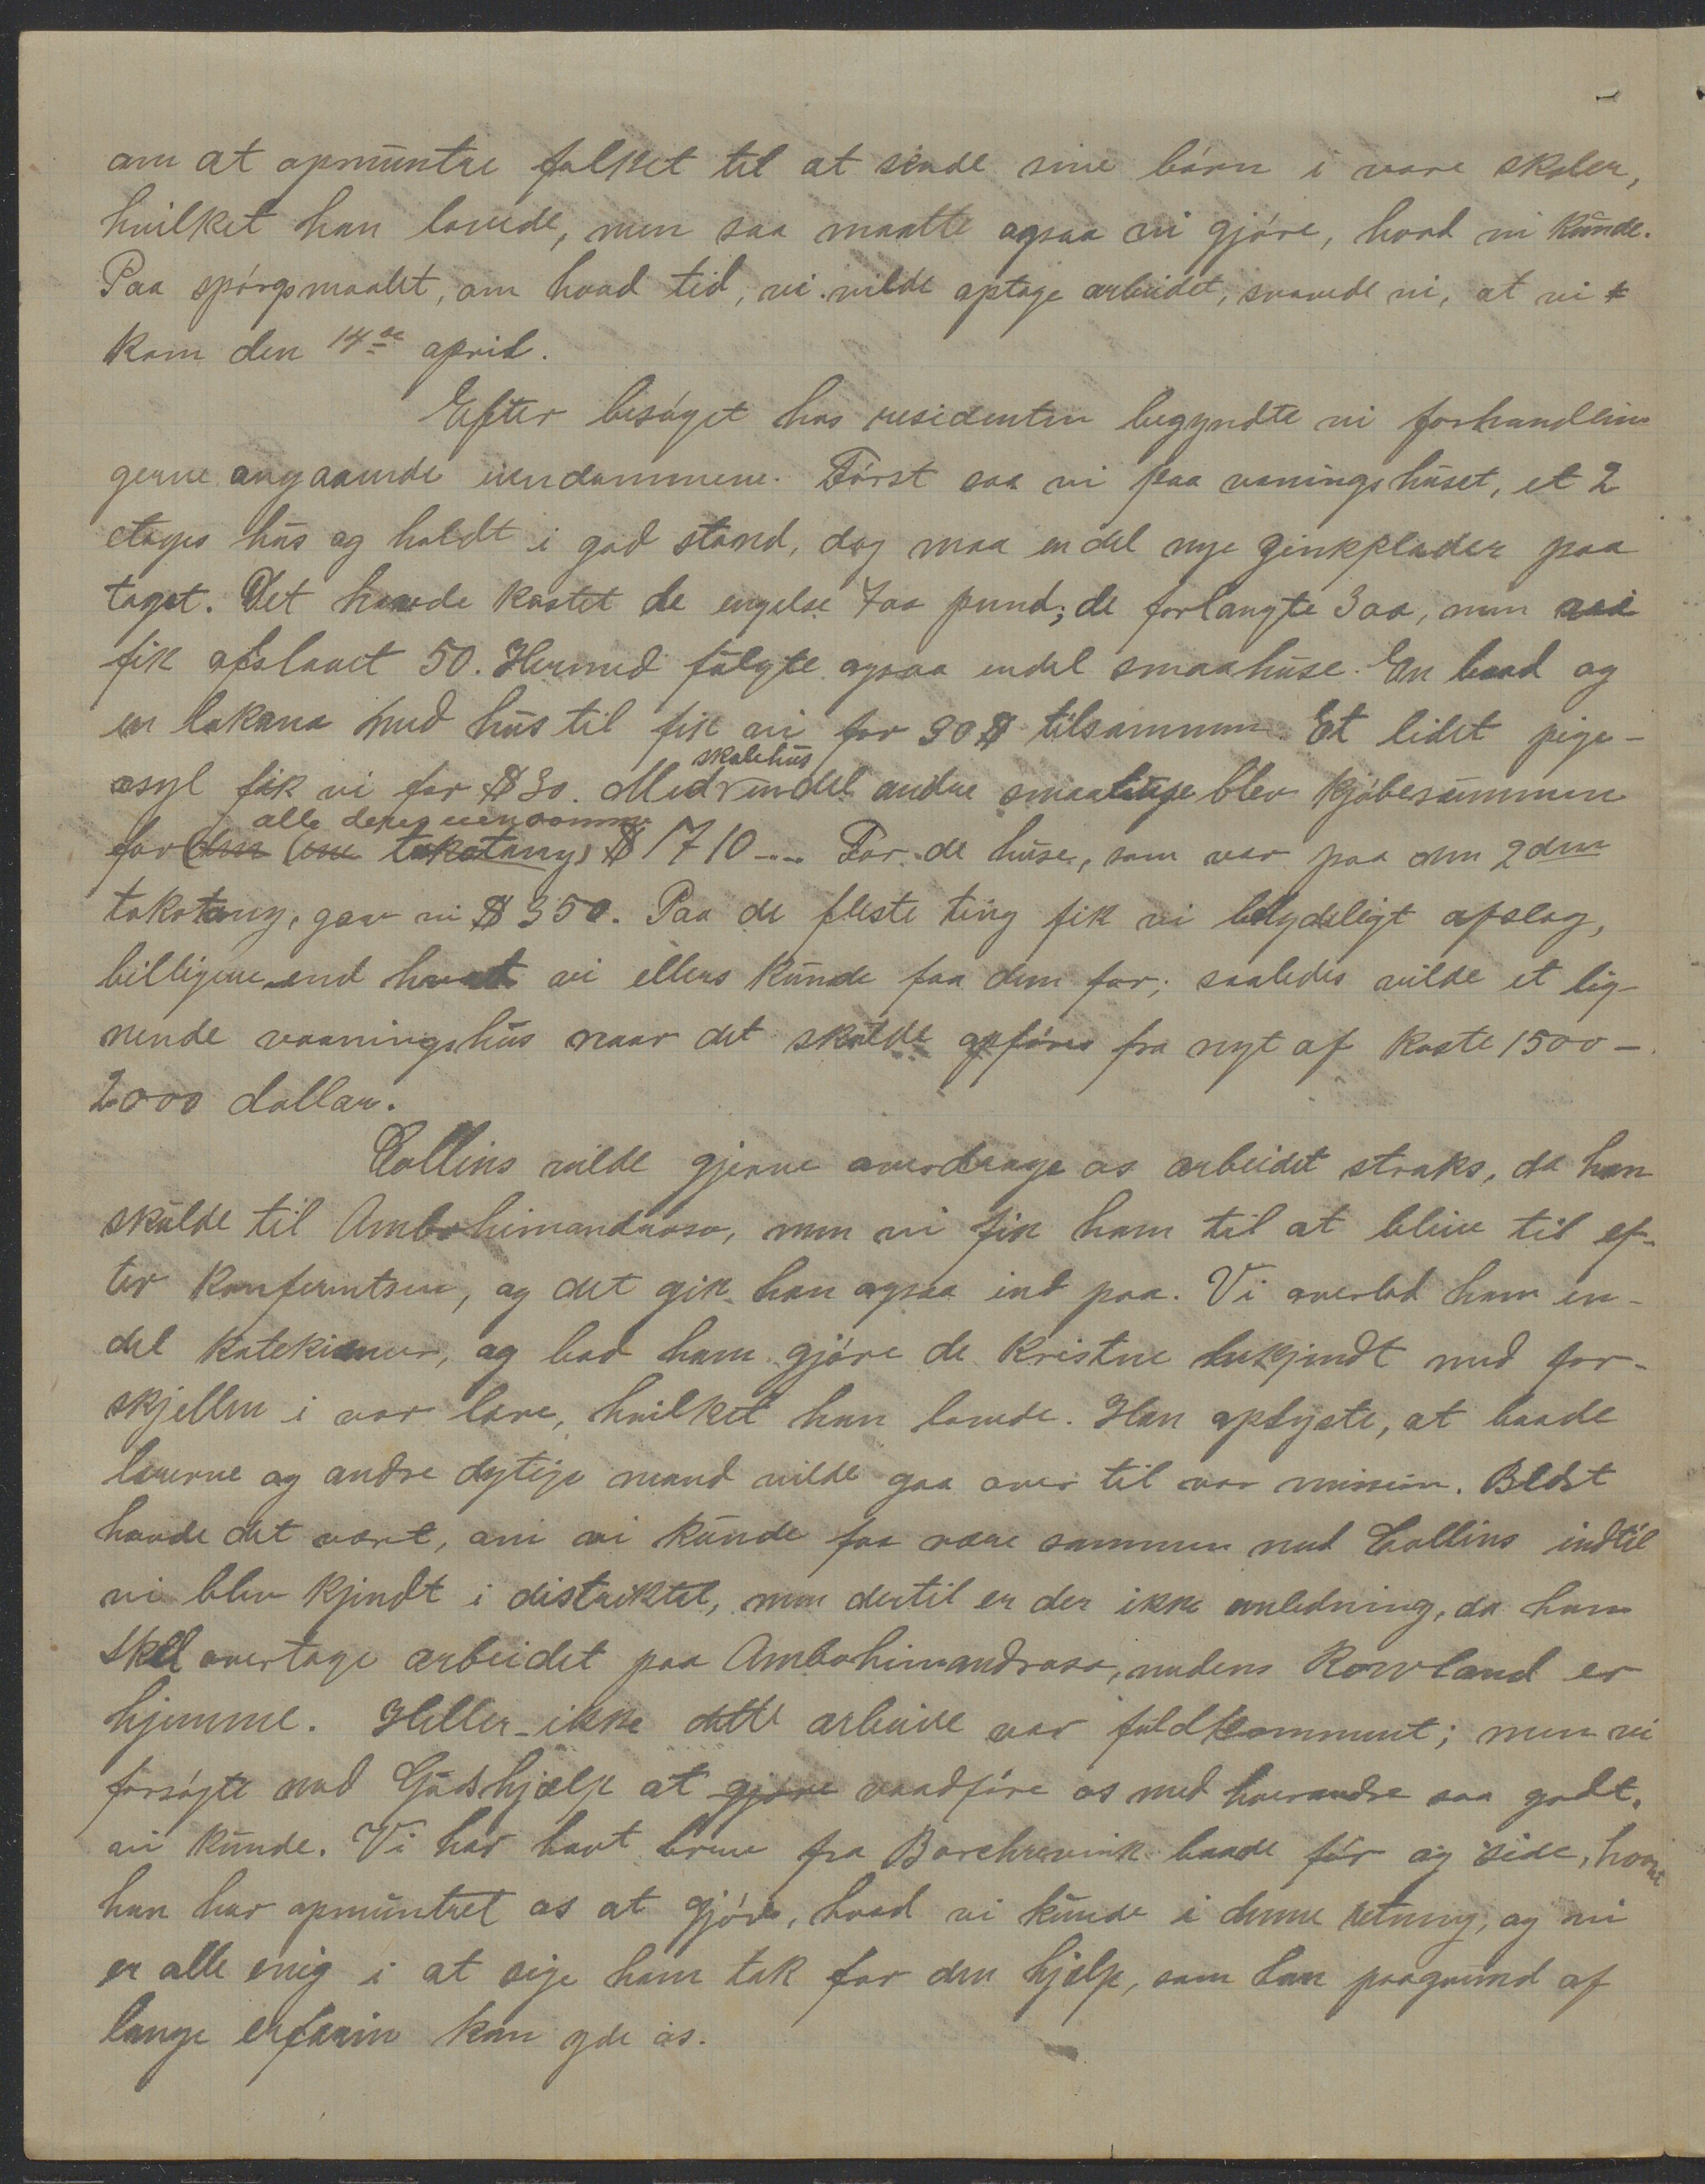 om at opmuntre folket til at sende sine børn i vore skoler,
hvilket han lovede, men saa maatte ogsaa vi gjøre, hvad vi kunde.
Paa spørgsmaalet, om hvad tid, vi vilde optage arbeidet, svarede vi, at vi
kom den 14de april.
Efter besøget hos residenten begyndte vi forhandlin
gerne angaaende eiendommene. Først saa vi paa vaningshuset, et 2
etages hus og holdt i god stand, dog maa en del nye zinkplader paa
taget. Det havde kostet de engelse 700 pund; de forlangte 300, men vi
fik afslaaet 50. Hermed fulgte ogsaa endel smaahuse. En baad og
en lakana med hus til fik vi for 90$ tilsammen. Et lidet pige-
asyl fik vi for $30. Med skolehus endel andre smaating blev kjøbesummen
for (den ene tokotany) alle deres eiendomme $1710.... For de huse, som var paa den 2den
tokotany, gav vi $350. Paa de fleste ting fik vi betydeligt afslag,
billigere end hvad vi ellers kunde faa dem for; saaledes vilde et lig-
nende vaaningshus naar det skulde opføres fra nyt af koste 1500-
2000 dollar.
Collins vilde gjerne overdrage os arbeidet straks, da han
skulde til Ambohimandroso, men vi fik ham til at blive til ef-
ter konferentsen, og det gik han ogsaa ind paa. Vi overlod ham en-
del katekismer, og bad ham gjøre de kristne bekjendt med for-
skjellen i vor lære, hvilket han lovede. Han oplyste, at baade
lærerne og andre dytige mænd vilde gaa over til vor mission. Bedst
havde det vært, om vi kunde faa være sammen med Collins indtil
vi blev kjendt i distriktet, men dertil er der ikke anledning, da han
skal overtage arbeidet paa Ambohimandroso, medens Rowland er
hjemme. Heller ikke dette arbeide var fuldkomment; men vi
forsøgte med Guds hjælp at gjøre raadføre os med hverandre saa godt,
vi kunde. Vi har havt breve fra Borchrevink baade før og side, hvori
han har opmuntret os at gjøre, hvad vi kunde i denne retning, og vi
er alle enig i at sige ham tak for den hjælp, som han paagrund af
lange erfarin kan yde os.